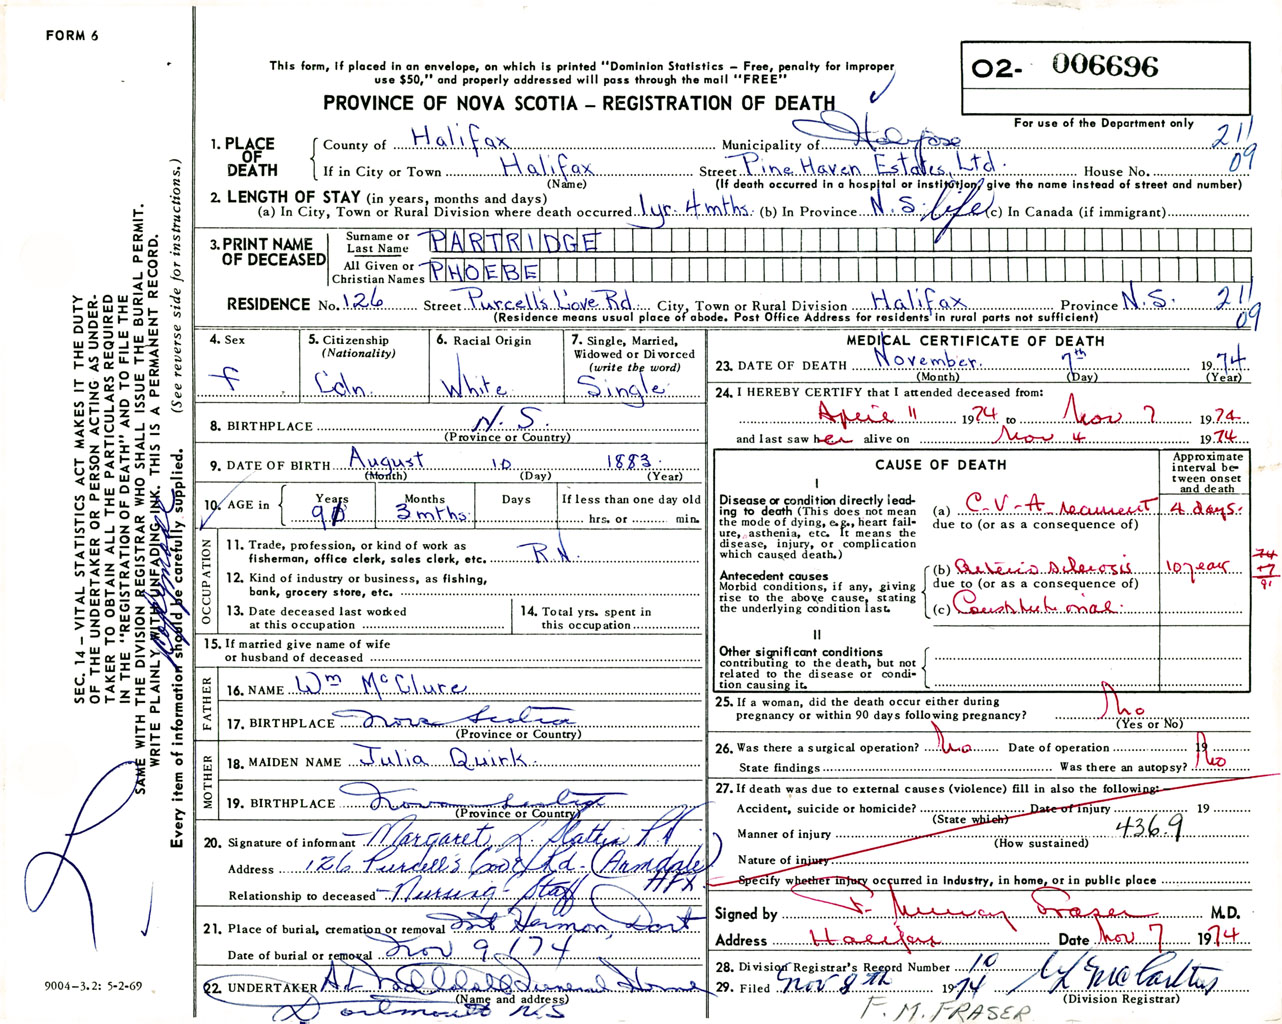 FORM 6
This form, if placed in an envelope, on which is printed "Dominion Statistics – Free, penalty for improper
use $50," and properly addressed will pass through the mail "FREE"
PROVINCE OF NOVA SCOTIA – REGISTRATION OF DEATH
O2- 006696
For use of the Department only
1. PLACE OF DEATH
County of Halifax Municipality of Halifax 211
If in City or Town Halifax Street Pine Haven Estates, Ltd. House No. 09
(Name) (If death occurred in a hospital or institution, give the name instead of street and number)
2. LENGTH OF STAY (in years, months and days)
(a) In City, Town or Rural Division where death occurred 1yr. 4 mths. (b) In Province N.S. life (c) In Canada (if immigrant)
3. PRINT NAME OF DECEASED
Surname or Last Name PARTRIDGE
All Given or Christian Names PHOEBE
RESIDENCE No. 126 Street Purcell's Cove Rd. City, Town or Rural Division Halifax Province N.S. 211
(Residence means usual place of abode. Post Office Address for residents in rural parts not sufficient) 09
4. Sex
F
5. Citizenship
(Nationality)
Cdn.
6. Racial Origin
White
7. Single, Married,
Widowed or Divorced
(write the word)
Single
8. BIRTHPLACE N.S.
(Province or Country)
9. DATE OF BIRTH August 10 1883
(Month) (Day) (Year)
10. AGE in
Years Months Days If less than one day old
91 3 mths. hrs. or min.
OCCUPATION
11. Trade, profession, or kind of work as
fisherman, office clerk, sales clerk, etc. R.N.
12. Kind of industry or business, as fishing,
bank, grocery store, etc.
13. Date deceased last worked
at this occupation
14. Total yrs. spent in
this occupation
15. If married give name of wife
or husband of deceased
FATHER
16. NAME Wm McClure
17. BIRTHPLACE Nova Scotia
(Province or Country)
MOTHER
18. MAIDEN NAME Julia Quirk
19. BIRTHPLACE Nova Scotia
(Province or Country)
20. Signature of informant Margaret L. RN
Address 126 Purcell's Cove Rd. (Armdale)
HFX.
Relationship to deceased Nursing Staff
21. Place of burial, cremation or removal Mt Hermon, Dart
Date of burial or removal Nov 9/74
22. UNDERTAKER Funeral Home
(Name and address)
Dartmouth N.S
MEDICAL CERTIFICATE OF DEATH
23. DATE OF DEATH November 7th 1974
(Month) (Day) (Year)
24. I HEREBY CERTIFY that I attended deceased from:
April 11 1974 to Nov 7 1974
and last saw her alive on Nov 4 1974
CAUSE OF DEATH
Approximate
interval be-
tween onset
and death
I
Disease or condition directly lead-
ing to death (This does not mean
the mode of dying, e.g., heart fail-
ure, asthenia, etc. It means the
disease, injury, or complication
which caused death.)
(a) C-V-A recurrent 4 days.
due to (or as a consequence of)
Antecedent causes
Morbid conditions, if any, giving
rise to the above cause, stating
the underlying condition last.
(b) Arterio sclerosis 10 year
due to (or as a consequence of)
(c) Constitutional.
74
+7
91
II
Other significant conditions
contributing to the death, but not
related to the disease or condi-
tion causing it.
25. If a woman, did the death occur either during
pregnancy or within 90 days following pregnancy? No
(Yes or No)
26. Was there a surgical operation? No Date of operation 19
State findings Was there an autopsy? No
27. If death was due to external causes (violence) fill in also the following:
Accident, suicide or homicide? Date of Injury 19
(State which)
Manner of injury 436.9
(How sustained)
Nature of injury
Specify whether injury occurred in Industry, in home, or in public place
Signed by F. Murray Fraser M.D.
Address Halifax Date Nov 7 1974
28. Division Registrar's Record Number 10
29. Filed Nov 8th 1974
(Division Registrar)
F. M. FRASER
SEC. 14 – VITAL STATISTICS ACT MAKES IT THE DUTY
OF THE UNDERTAKER OR PERSON ACTING AS UNDER-
TAKER TO OBTAIN ALL THE PARTICULARS REQUIRED
IN THE "REGISTRATION OF DEATH" AND TO FILE THE
SAME WITH THE DIVISION REGISTRAR WHO SHALL ISSUE THE BURIAL PERMIT.
WRITE PLAINLY WITH UNFADING INK. THIS IS A PERMANENT RECORD.
Every item of information should be carefully supplied. (See reverse side for instructions.)
9004–3.2: 5-2-69